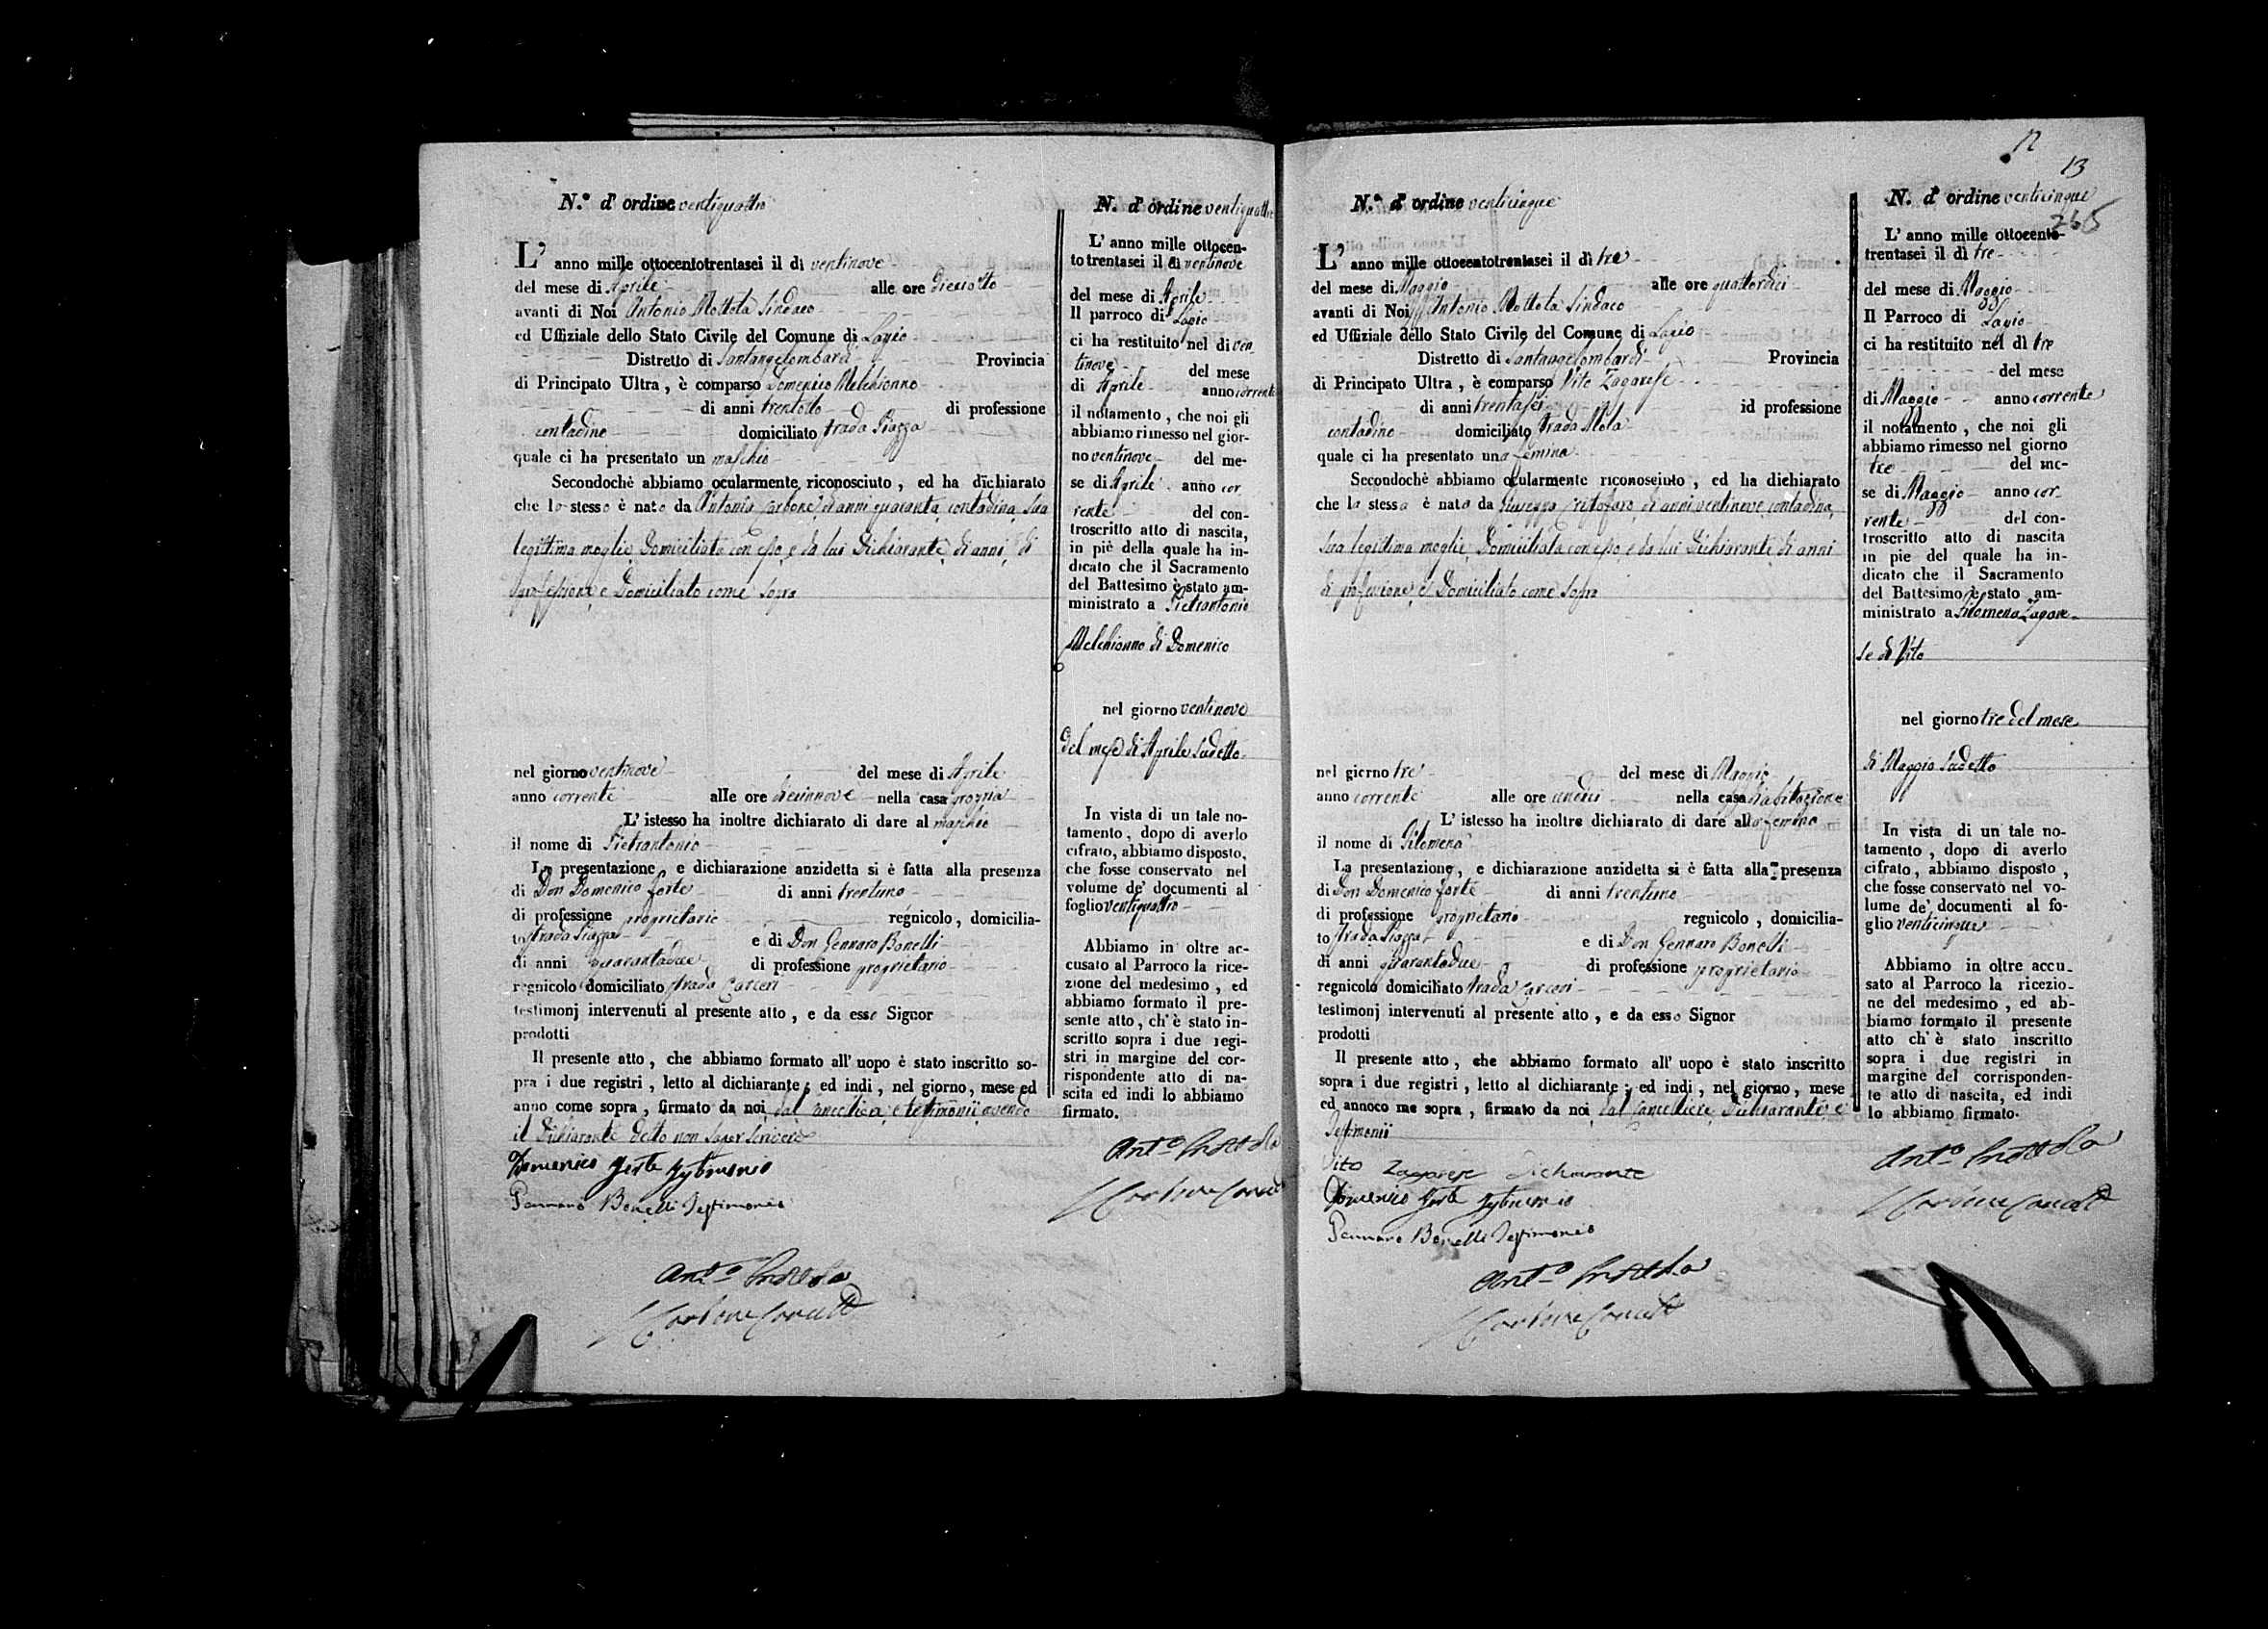 N.º d' ordine ventiquattro
L' anno mille ottocentotrentasei il dì ventinove
del mese di Aprile alle ore dieciotto
avanti di Noi Antonio Mottola Sindaco
ed Uffiziale dello Stato Civile del Comune di Lapio
Distretto di Santangelombardi Provincia
di Principato Ultra, è comparso Domenico Melchionno
di anni trentotto di professione
contadino domiciliato strada Piazza
quale ci ha presentato un maschio
Secondochè abbiamo ocularmente riconosciuto, ed ha dichiarato
che lo stesso è nato da Antonia Carbone di anni quaranta contadina, sua
legittima moglie Domiciliata con esso, e da lui Dichiarante, di anni, di
professione, e Domiciliato come sopra
nel giorno ventinove del mese di Aprile
anno corrente alle ore diecinnove nella casa propria
L' istesso ha inoltre dichiarato di dare al maschio
il nome di Pietrantonio
La presentazione, e dichiarazione anzidetta si è fatta alla presenza
di Don Domenico Forte di anni trentuno
di professione proprietario regnicolo, domicilia-
to strada Piazza e di Don Gennaro Bonelli
di anni quarantadue di professione proprietario
regnicolo domiciliato strada Carceri
testimonj intervenuti al presente atto, e da esso Signor
prodotti
Il presente atto, che abbiamo formato all' uopo è stato inscritto so-
pra i due registri, letto al dichiarante; ed indi, nel giorno, mese ed
anno come sopra, firmato da noi dal Cancelliere, e testimonii avendo
il Dichiarante detto non saper scrivere
Domenico Forte Testimonio
Gennaro Bonelli Testimonio
Ant.º Mottola
Carbone Cancell
N. d' ordine ventiquattro
L' anno mille ottocen-
totrentasei il dì ventinove
del mese di Aprile
Il parroco di Lapio
ci ha restituito nel di ven-
tinove del mese
di Aprile anno corrente
il notamento, che noi gli
abbiamo rimesso nel gior-
no ventinove del me-
se di Aprile anno cor
rente del con-
troscritto atto di nascita,
in piè della quale ha in-
dicato che il Sacramento
del Battesimo è stato am-
ministrato a Pietrantonio
Melchionno di Domenico
nel giorno ventinove
del mese di Aprile sudetto
In vista di un tale no-
tamento, dopo di averlo
cifrato, abbiamo disposto,
che fosse conservato nel
volume de' documenti al
foglio ventiquattro
Abbiamo in oltre ac-
cusato al Parroco la rice-
zione del medesimo, ed
abbiamo formato il pre-
sente atto, ch' è stato in-
scritto sopra i due regi-
stri in margine del cor-
rispondente atto di na-
scita ed indi lo abbiamo
firmato.
Ant.º Mottola
Carbone Cancell
12
13
N.º d' ordine venticinque
L' anno mille ottocentotrentasei il dì tre
del mese di Maggio alle ore quattordici
avanti di Noi Antonio Mottola Sindaco
ed Uffiziale dello Stato Civile del Comune di Lapio
Distretto di Santangelombardi Provincia
di Principato Ultra, è comparso Vito Zagarese
di anni trentasei id professione
contadino domiciliato strada Mola
quale ci ha presentato una femina
Secondochè abbiamo ocularmente riconosciuto, ed ha dichiarato
che la stessa è nata da Giuseppa Cristofaro, di anni ventinove contadina,
sua legittima moglie, Domiciliata con esso, e da lui Dichiarante, di anni
di professione, e Domiciliato come sopra
nel giorno tre del mese di Maggio
anno corrente alle ore undici nella casa d'abitazione
L' istesso ha inoltre dichiarato di dare alla femina
il nome di Filomena
La presentazione, e dichiarazione anzidetta si è fatta alla presenza
di Don Domenico Forte di anni trentuno
di professione proprietario regnicolo, domicilia-
to strada Piazza e di Don Gennaro Bonelli
di anni quarantadue di professione proprietario
regnicolo domiciliato strada Carceri
testimonj intervenuti al presente atto, e da esso Signor
prodotti
Il presente atto, che abbiamo formato all' uopo è stato inscritto
sopra i due registri, letto al dichiarante; ed indi, nel giorno, mese
ed annoco me sopra, firmato da noi dal Cancelliere, Dichiarante e
Testimonii
Vito Zagarese Dichiarante
Domenico Forte Testimonio
Gennaro Bonelli Testimonio
Ant.º Mottola
Carbone Cancell
N. d' ordine venticinque
265
L' anno mille ottocento-
trentasei il dì tre
del mese di Maggio
Il Parroco di Lapio
ci ha restituito nel dì tre
del mese
di Maggio anno corrente
il notamento, che noi gli
abbiamo rimesso nel giorno
tre del me-
se di Maggio anno cor-
rente del con-
troscritto atto di nascita
in pie del quale ha in-
dicato che il Sacramento
del Battesimo è stato am-
ministrato a Filomena Zagare-
se di Vito
nel giorno tre del mese
di Maggio sudetto
In vista di un tale no-
tamento, dopo di averlo
cifrato, abbiamo disposto,
che fosse conservato nel vo-
lume de' documenti al fo-
glio venticinque
Abbiamo in oltre accu-
sato al Parroco la ricezio-
ne del medesimo, ed ab-
biamo formato il presente
atto ch' è stato inscritto
sopra i due registri in
margine del corrisponden-
te atto di nascita, ed indi
lo abbiamo firmato.
Ant.º Mottola
Carbone Cancell